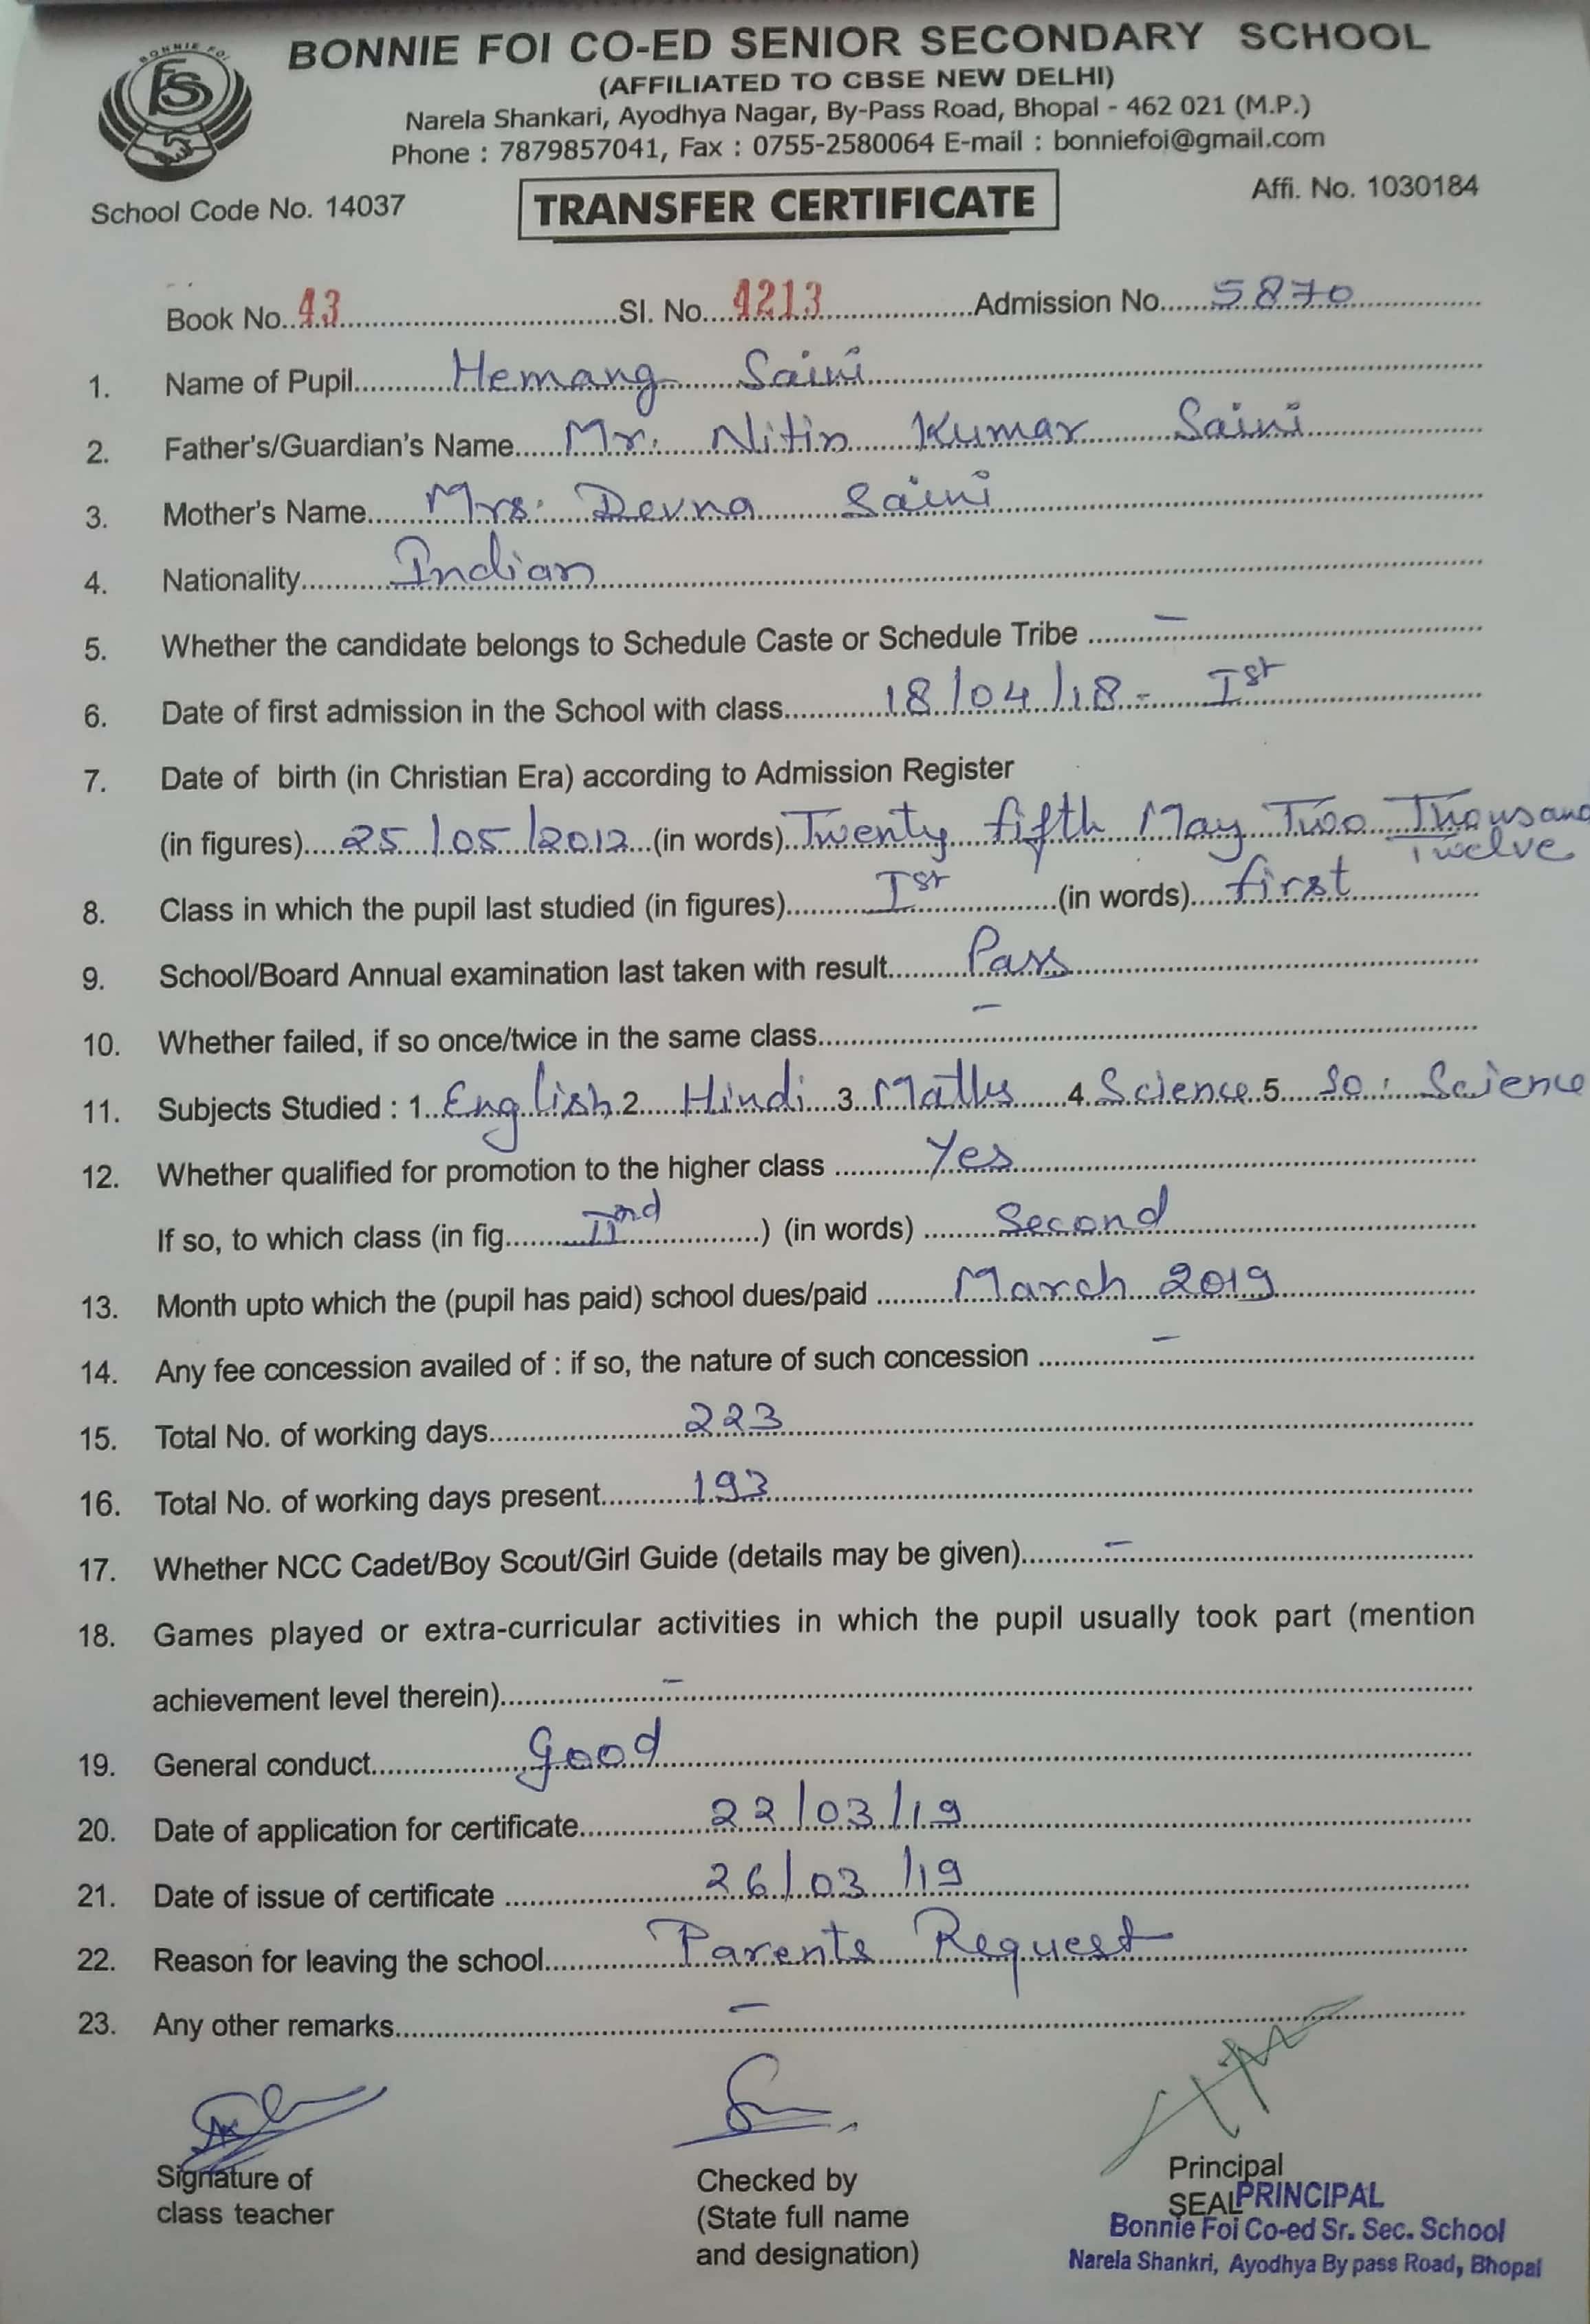 BONNIE FOI
FS
BONNIE FOI CO-ED SENIOR SECONDARY SCHOOL
(AFFILIATED TO CBSE NEW DELHI)
Narela Shankari, Ayodhya Nagar, By-Pass Road, Bhopal - 462 021 (M.P.)
Phone : 7879857041, Fax : 0755-2580064 E-mail : bonniefoi@gmail.com
School Code No. 14037 TRANSFER CERTIFICATE Affi. No. 1030184
Book No. 43 Sl. No. 4213 Admission No. 5870
1. Name of Pupil Hemang Saini
2. Father's/Guardian's Name Mr. Nitin Kumar Saini
3. Mother's Name Mrs. Devna Saini
4. Nationality Indian
5. Whether the candidate belongs to Schedule Caste or Schedule Tribe –
6. Date of first admission in the School with class 18/04/18 - Ist
7. Date of birth (in Christian Era) according to Admission Register
(in figures) 25/05/2012 (in words) Twenty fifth May Two Thousand
Twelve
8. Class in which the pupil last studied (in figures) Ist (in words) first
9. School/Board Annual examination last taken with result Pass
10. Whether failed, if so once/twice in the same class –
11. Subjects Studied : 1. English 2. Hindi 3. Maths 4. Science 5. So. Science
12. Whether qualified for promotion to the higher class Yes
If so, to which class (in fig. IInd ) (in words) Second
13. Month upto which the (pupil has paid) school dues/paid March 2019
14. Any fee concession availed of : if so, the nature of such concession –
15. Total No. of working days 223
16. Total No. of working days present 193
17. Whether NCC Cadet/Boy Scout/Girl Guide (details may be given) –
18. Games played or extra-curricular activities in which the pupil usually took part (mention
achievement level therein) –
19. General conduct Good
20. Date of application for certificate 22/03/19
21. Date of issue of certificate 26/03/19
22. Reason for leaving the school Parents Request
23. Any other remarks –
Signature of
class teacher
Checked by
(State full name
and designation)
Principal
SEAL
PRINCIPAL
Bonnie Foi Co-ed Sr. Sec. School
Narela Shankri, Ayodhya By pass Road, Bhopal